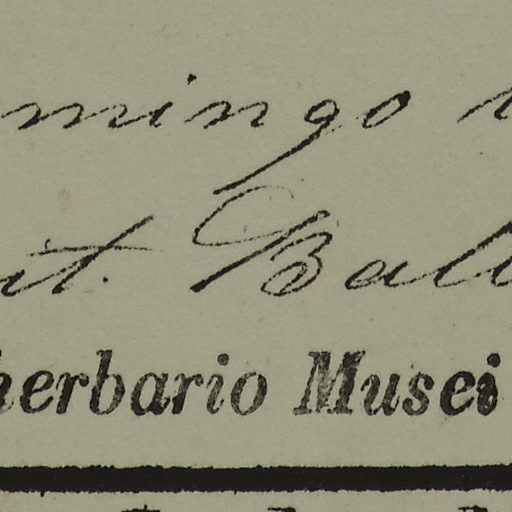 mingo
it. Bal
herbario Musei